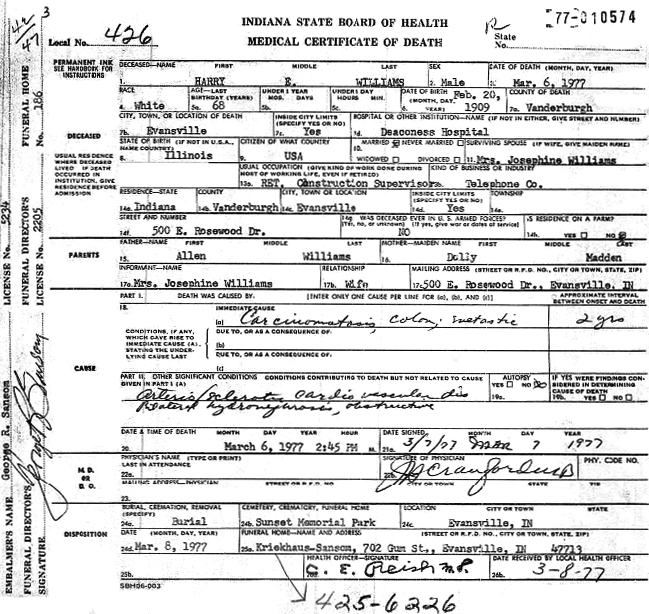 3
42/47
INDIANA STATE BOARD OF HEALTH
77-010574
Local No. 426
MEDICAL CERTIFICATE OF DEATH
State No.
PERMANENT INK
SEE HANDBOOK FOR INSTRUCTIONS
DECEASED—NAME FIRST MIDDLE LAST SEX DATE OF DEATH (MONTH, DAY, YEAR)
1. HARRY E. WILLIAMS 2. Male 3. Mar. 6, 1977
RACE AGE—LAST BIRTHDAY (YEARS) UNDER 1 YEAR MOS. DAYS UNDER 1 DAY HOURS MIN. DATE OF BIRTH (MONTH, DAY, YEAR) COUNTY OF DEATH
4. White 5a. 68 5b. 5c. 6. Feb. 20, 1909 7a. Vanderburgh
DECEASED
CITY, TOWN, OR LOCATION OF DEATH INSIDE CITY LIMITS (SPECIFY YES OR NO) HOSPITAL OR OTHER INSTITUTION—NAME (IF NOT IN EITHER, GIVE STREET AND NUMBER)
7b. Evansville 7c. Yes 7d. Deaconess Hospital
USUAL RESIDENCE WHERE DECEASED LIVED. IF DEATH OCCURRED IN INSTITUTION, GIVE RESIDENCE BEFORE ADMISSION
STATE OF BIRTH (IF NOT IN U.S.A., NAME COUNTRY) CITIZEN OF WHAT COUNTRY MARRIED NEVER MARRIED SURVIVING SPOUSE (IF WIFE, GIVE MAIDEN NAME)
8. Illinois 9. USA 10. WIDOWED DIVORCED 11. Mrs. Josephine Williams
USUAL OCCUPATION (GIVE KIND OF WORK DONE DURING MOST OF WORKING LIFE, EVEN IF RETIRED) KIND OF BUSINESS OR INDUSTRY
13a. RET. Construction Supervisor Telephone Co.
RESIDENCE—STATE COUNTY CITY, TOWN OR LOCATION INSIDE CITY LIMITS (SPECIFY YES OR NO) TOWNSHIP
14a. Indiana 14b. Vanderburgh 14c. Evansville 14d. Yes 14e.
STREET AND NUMBER 14g. WAS DECEASED EVER IN U.S. ARMED FORCES? (Yes, no, or unknown) (If yes, give war or dates of service) IS RESIDENCE ON A FARM?
14f. 500 E. Rosewood Dr. NO 14h. YES NO
PARENTS
FATHER—NAME FIRST MIDDLE LAST MOTHER—MAIDEN NAME FIRST MIDDLE LAST
15. Allen Williams 16. Dolly Madden
INFORMANT—NAME RELATIONSHIP MAILING ADDRESS (STREET OR R.F.D. NO., CITY OR TOWN, STATE, ZIP)
17a. Mrs. Josephine Williams 17b. Wife 17c. 500 E. Rosewood Dr., Evansville, IN
PART I. DEATH WAS CAUSED BY: [ENTER ONLY ONE CAUSE PER LINE FOR (a), (b), AND (c)] APPROXIMATE INTERVAL BETWEEN ONSET AND DEATH
18. IMMEDIATE CAUSE
(a) Carcinomatosis, colon, metastic 2 yrs
CONDITIONS, IF ANY, WHICH GAVE RISE TO IMMEDIATE CAUSE (A) STATING THE UNDERLYING CAUSE LAST
DUE TO, OR AS A CONSEQUENCE OF:
(b)
DUE TO, OR AS A CONSEQUENCE OF:
(c)
CAUSE
PART II. OTHER SIGNIFICANT CONDITIONS CONDITIONS CONTRIBUTING TO DEATH BUT NOT RELATED TO CAUSE GIVEN IN PART I (A) AUTOPSY YES NO IF YES WERE FINDINGS CONSIDERED IN DETERMINING CAUSE OF DEATH
Arterio/sclerotic cardio vascular dis
hydronephrosis, obstructive
19a. 19b. YES NO
DATE & TIME OF DEATH MONTH DAY YEAR HOUR DATE SIGNED MONTH DAY YEAR
20. March 6, 1977 2:45 P M. 21a. 3/7/77 7 1977
M. D. OR D. O.
PHYSICIAN'S NAME (TYPE OR PRINT) LAST IN ATTENDANCE SIGNATURE OF PHYSICIAN PHY. CODE NO.
22a. 22b.
MAILING ADDRESS STREET OR R.F.D. NO. CITY OR TOWN STATE ZIP
23.
BURIAL, CREMATION, REMOVAL (SPECIFY) CEMETERY, CREMATORY, FUNERAL HOME LOCATION CITY OR TOWN STATE
24a. Burial 24b. Sunset Memorial Park 24c. Evansville, IN
DISPOSITION
DATE (MONTH, DAY, YEAR) FUNERAL HOME—NAME AND ADDRESS (STREET OR R.F.D. NO., CITY OR TOWN, STATE, ZIP)
24d. Mar. 8, 1977 25a. Kriekhaus-Sansom, 702 Gum St., Evansville, IN 47713
HEALTH OFFICER—SIGNATURE DATE RECEIVED BY LOCAL HEALTH OFFICER
25b. 26b. 3-8-77
SBH06-003
425-6226
EMBALMER'S NAME George R. Sansom LICENSE No. 5234
FUNERAL DIRECTOR'S SIGNATURE FUNERAL DIRECTOR'S LICENSE No. 2205 FUNERAL HOME No. 186